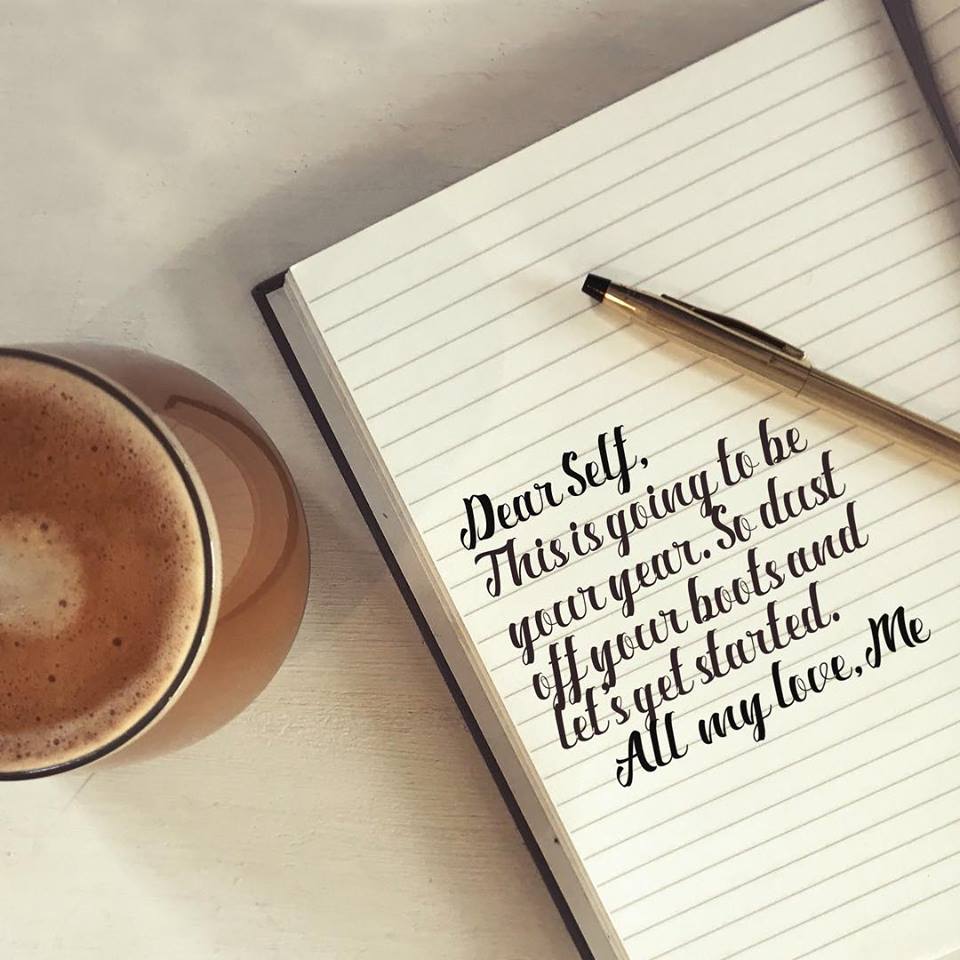 Dear Self,
This is going to be
your year. So dust
off your boots and
let's get started.
All my love, Me